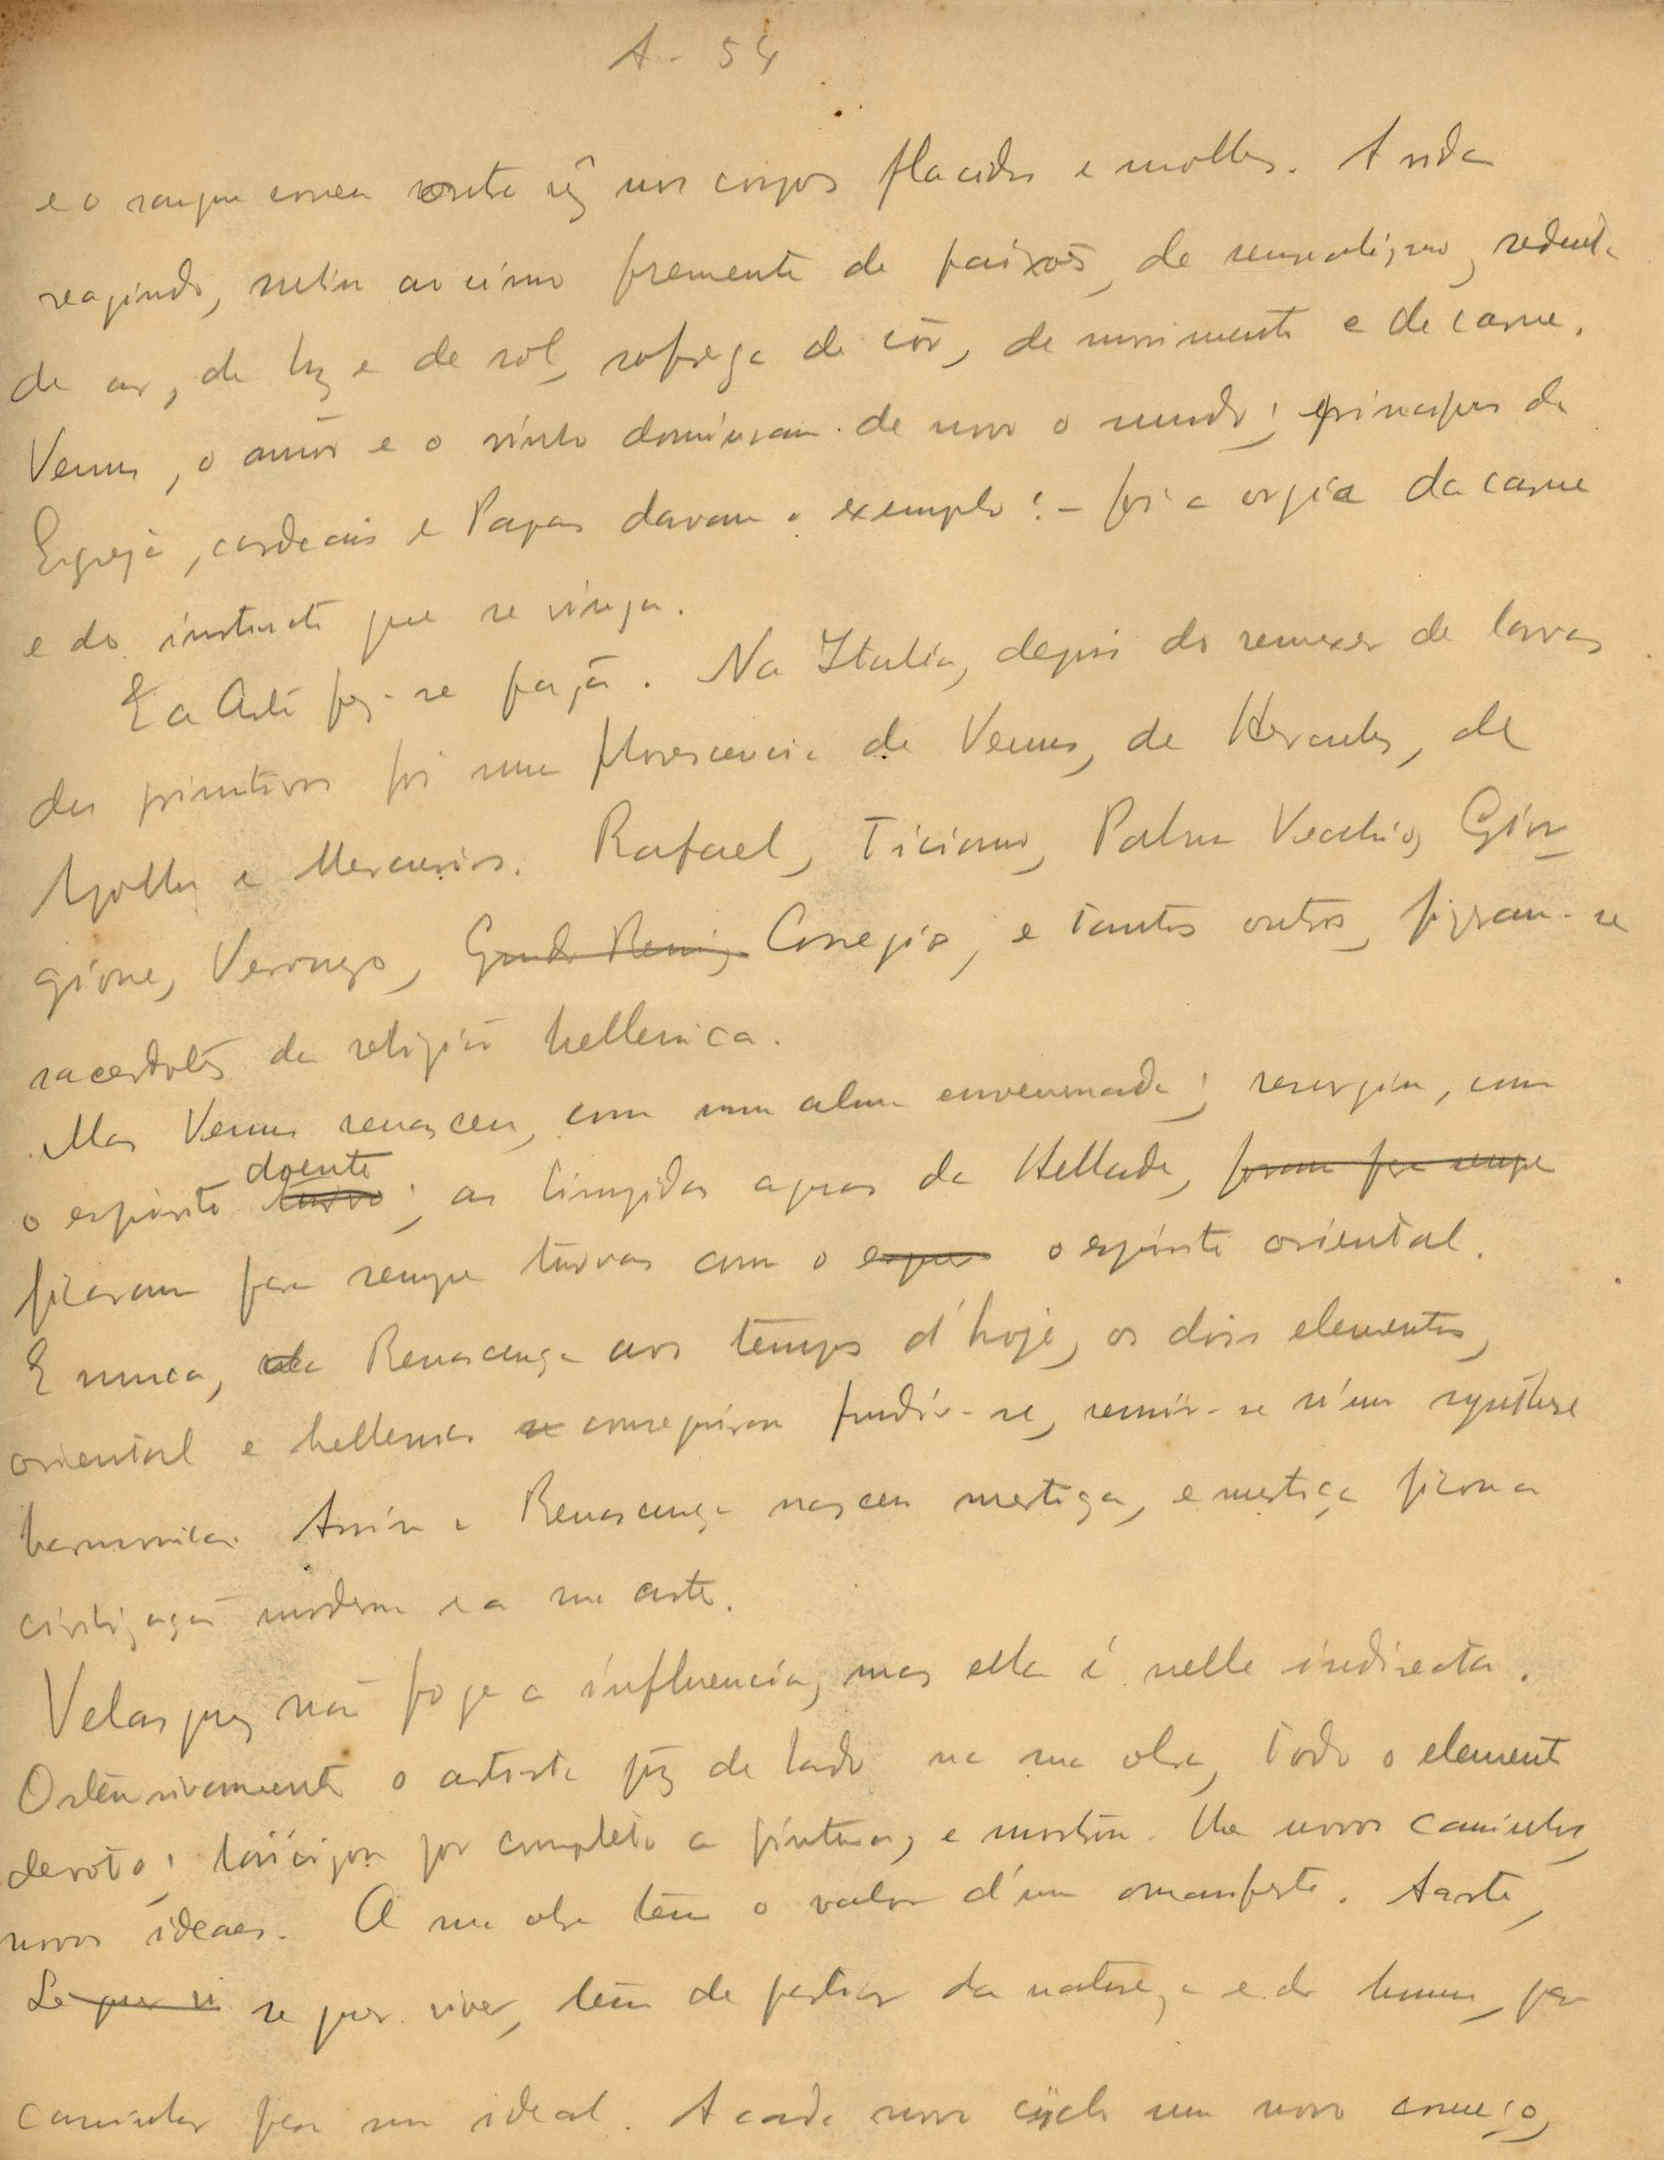 A - 54
e o sangue correu outra vez nos corpos flacidos e molles. A vida
reagindo, subiu ao cimo fremente de paixões, de sensualismo, sedenta
de ar, de luz e de sol, sofrega de côr, de movimento e de carne.
Venus, o amôr e o vinho dominaram de novo o mundo; principes da
Egreja, cardeais e Papas davam o exemplo: - foi a orgia da carne
e do instincto que se vinga.
E a Arte fez-se pagã. Na Italia, depois do remexer de larvas
dos primitivos foi uma florescencia de Venus, de Hercules, de
Apollos e Mercurios. Rafael, Ticiano, Palma Vecchio, Gior
gione, Veroneso, Guido Reni, Corregio, e tantos outros, fizeram-se
sacerdotes da religião hellenica.
Mas Venus renasceu, com uma alma envenenada; resurgiu, com
doente
o espirito turvo; as limpidas aguas da Hellade, foram para sempre
ficaram para sempre turvas com o espir o espirito oriental.
E nunca, da Renascença aos tempos d'hoje, os dois elementos,
oriental e hellenico se conseguiram fundir-se, reunir-se n'uma synthese
harmonica. Assim a Renascença nasceu mestiça, e mestiça ficou a
civilização moderna e a sua arte.
Velasquez não foge a influencia, mas ella é nelle indirecta.
Ostensivamente o artista pôz de lado na sua obra, todo o elemento
devoto; laicizou por completo a pintura, e mostrou-lhe novos caminhos,
novos ideaes. A sua obra tem o valor d'um manifesto. A arte,
Se quer vi se quer viver, tem de partir da natureza e do homem, para
caminhar para um ideal. A cada novo cyclo um novo começo,